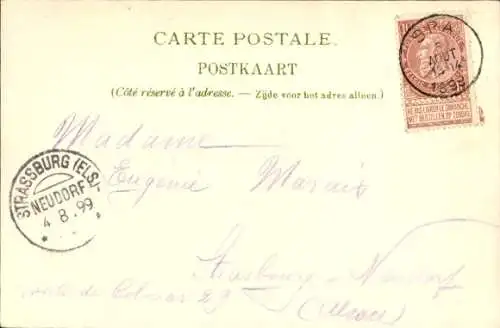 CARTE POSTALE.
POSTKAART
(Côté réservé à l'adresse. — Zijde voor het adres alleen.)
SPA
AOUT
1899
NE PAS LIVRER LE DIMANCHE
NIET BESTELLEN OP ZONDAG
Madame
Eugenie Marais
STRASSBURG (ELS)
NEUDORF
4.8.99
Strasbourg - Neudorf
route de Colmar 29
(Alsace)